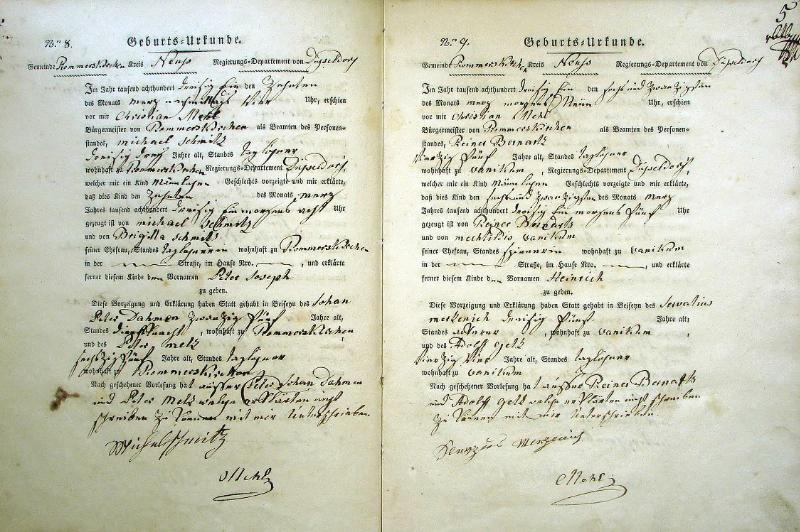 No. 8. Geburts-Urkunde.
Gemeinde Rommerskirchen Kreis Neuss Regierungs-Departement von Düsseldorf
Im Jahr tausend achthundert dreisig Ein den Zehnten
des Monats merz nachmittags Uhr, erschien
vor mir Christian Mehl
Bürgermeister von Rommerskirchen als Beamten des Personen-
standes, michael Schmitz
dreisig drey Jahre alt, Standes taglöhner
wohnhaft zu Rommerskirchen, Regierungs-Departement Düsseldorf,
welcher mir ein Kind Männlichen Geschlechts vorzeigte und mir erklärte,
daß dies Kind den Zehnten des Monats merz
Jahres tausend achthundert dreisig Ein morgens acht Uhr
gezeugt ist von michael Schmitz
und von Brigitta Schmitz
seiner Ehefrau, Standes taglöhnerin wohnhaft zu Rommerskirchen
in der Straße, im Hause Nro. und erklärte
ferner diesem Kinde den Vornamen Peter Joseph
zu geben.
Diese Vorzeigung und Erklärung haben Statt gehabt in Beiseyn des Johan
Peter Dahmen zwanzig fünf Jahre alt,
Standes wohnhaft zu Rommerskirchen,
und des Peter Metz
sechszig fünf Jahre alt, Standes taglöhner
wohnhaft zu Rommerskirchen
Nach geschehener Vorlesung hat ausser Peter Johan Dahmen
und Peter Metz welche erklärten nicht
schreiben zu können mit mir unterschrieben.
Michel Schmitz
Mehl
5
No. 9. Geburts-Urkunde.
Gemeinde Rommerskirchen Kreis Neuss Regierungs-Departement von Düsseldorf
Im Jahr tausend achthundert dreisig Ein den sechs und zwanzigsten
des Monats merz morgens Neun Uhr, erschien
vor mir Christian Mehl
Bürgermeister von Rommerskirchen als Beamten des Personen-
standes, Reiner
vierzig fünf Jahre alt, Standes taglöhner
wohnhaft zu vanikum, Regierungs-Departement Düsseldorf,
welcher mir ein Kind Männlichen Geschlechts vorzeigte und mir erklärte,
daß dies Kind den fünf und zwanzigsten des Monats merz
Jahres tausend achthundert dreisig Ein morgens fünf Uhr
gezeugt ist von Reiner
und von vanikum
seiner Ehefrau, Standes spinnerin wohnhaft zu vanikum
in der Straße, im Hause Nro. und erklärte
ferner diesem Kinde den Vornamen Heinrich
zu geben.
Diese Vorzeigung und Erklärung haben Statt gehabt in Beiseyn des Servatius
dreisig fünf Jahre alt,
Standes ackerer, wohnhaft zu vanikum,
und des Adolf
vierzig vier Jahre alt, Standes taglöhner
wohnhaft zu vanikum
Nach geschehener Vorlesung hat ausser Reiner
und Adolf welche erklärten nicht schreiben
zu können mit mir unterschrieben
Mehl